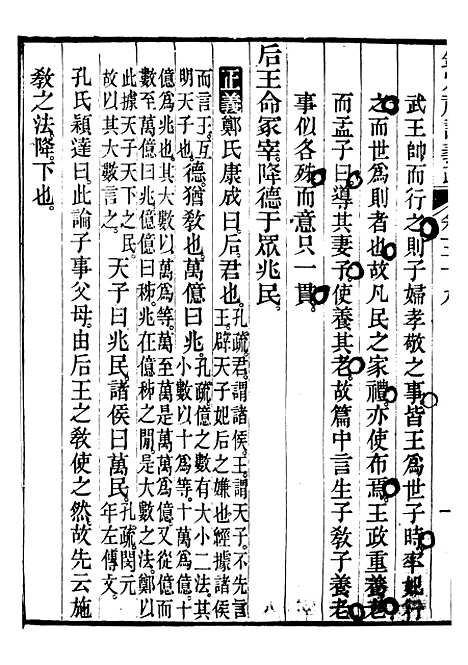 武王帥而行之則子婦孝敬之事皆王爲世子時率妃行
之而世爲則者也。故凡民之家禮。亦使布焉。王政重養老
而孟子曰導其妻子。使養其老。故篇中言生子敎子養老
事似各殊。而意只一貫。
后王命冢宰。降德于眾兆民。
正義鄭氏康成曰。后。君也。孔疏。君。謂諸侯。王。謂天子。不先言
王。辟天子妃后之嫌也。經據諸侯
而言王。互
明天子也。德。猶敎也。萬億曰兆。孔疏。億之數有大小二法。其
小數以十爲等。十萬爲億。十
億爲兆也。其大數以萬爲等。萬至萬。是萬萬爲億。又從億而
數至萬億曰兆。億億曰秭。兆在億秭之閒。是大數之法。鄭以
此據天子天下之民。
故以其大數言之。天子曰兆民。諸侯曰萬民。孔疏。閔元
年左傳文。
孔氏穎達曰。此論子事父母。由后王之敎使之然。故先云施
敎之法。降。下也。